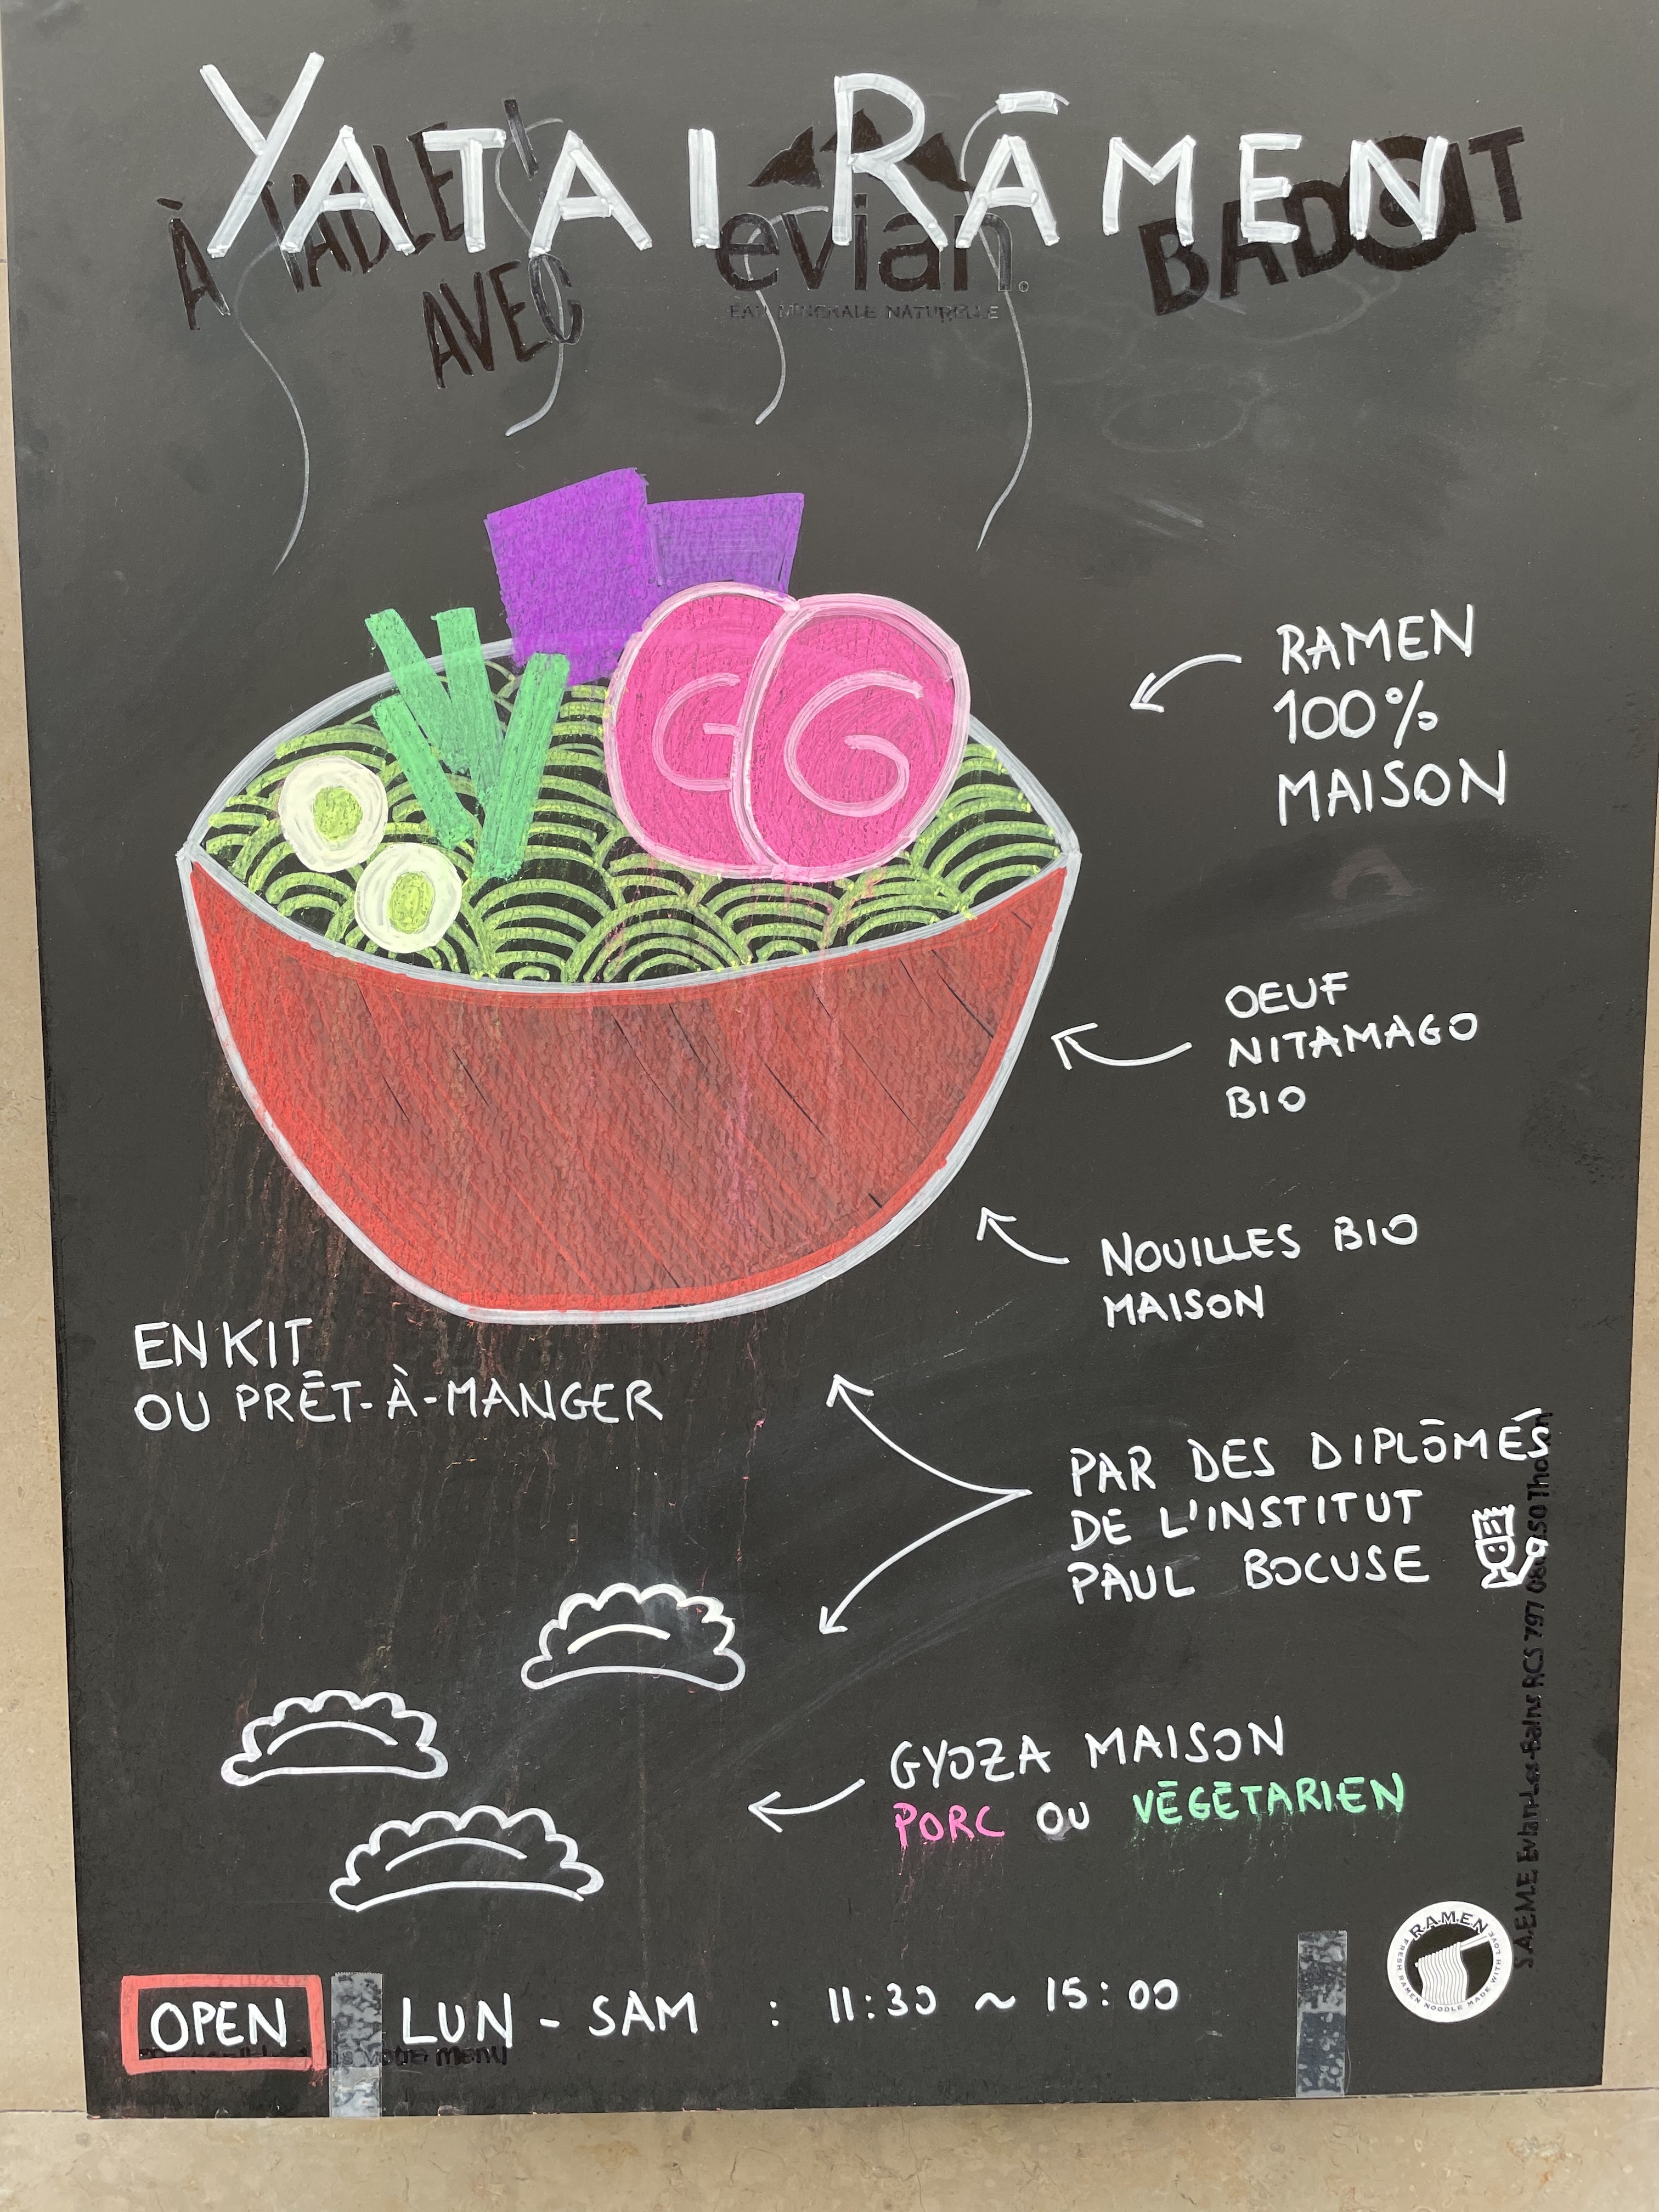 YATAI RĀMEN
À TABLE
AVEC
evian.
EAU MINÉRALE NATURELLE
BADOIT
RAMEN
100%
MAISON
OEUF
NITAMAGO
BIO
NOUILLES BIO
MAISON
EN KIT
OU PRÊT-À-MANGER
PAR DES DIPLÔMÉS
DE L'INSTITUT
PAUL BOCUSE
GYOZA MAISON
PORC OU VÉGÉTARIEN
R.A.M.E.N
FRESH RAMEN NOODLE MADE WITH LOVE
OPEN LUN - SAM : 11:30 ~ 15:00
votre menu
S.A.E.M.E Evian-Les-Bains RCS 797 080 850 Thonon